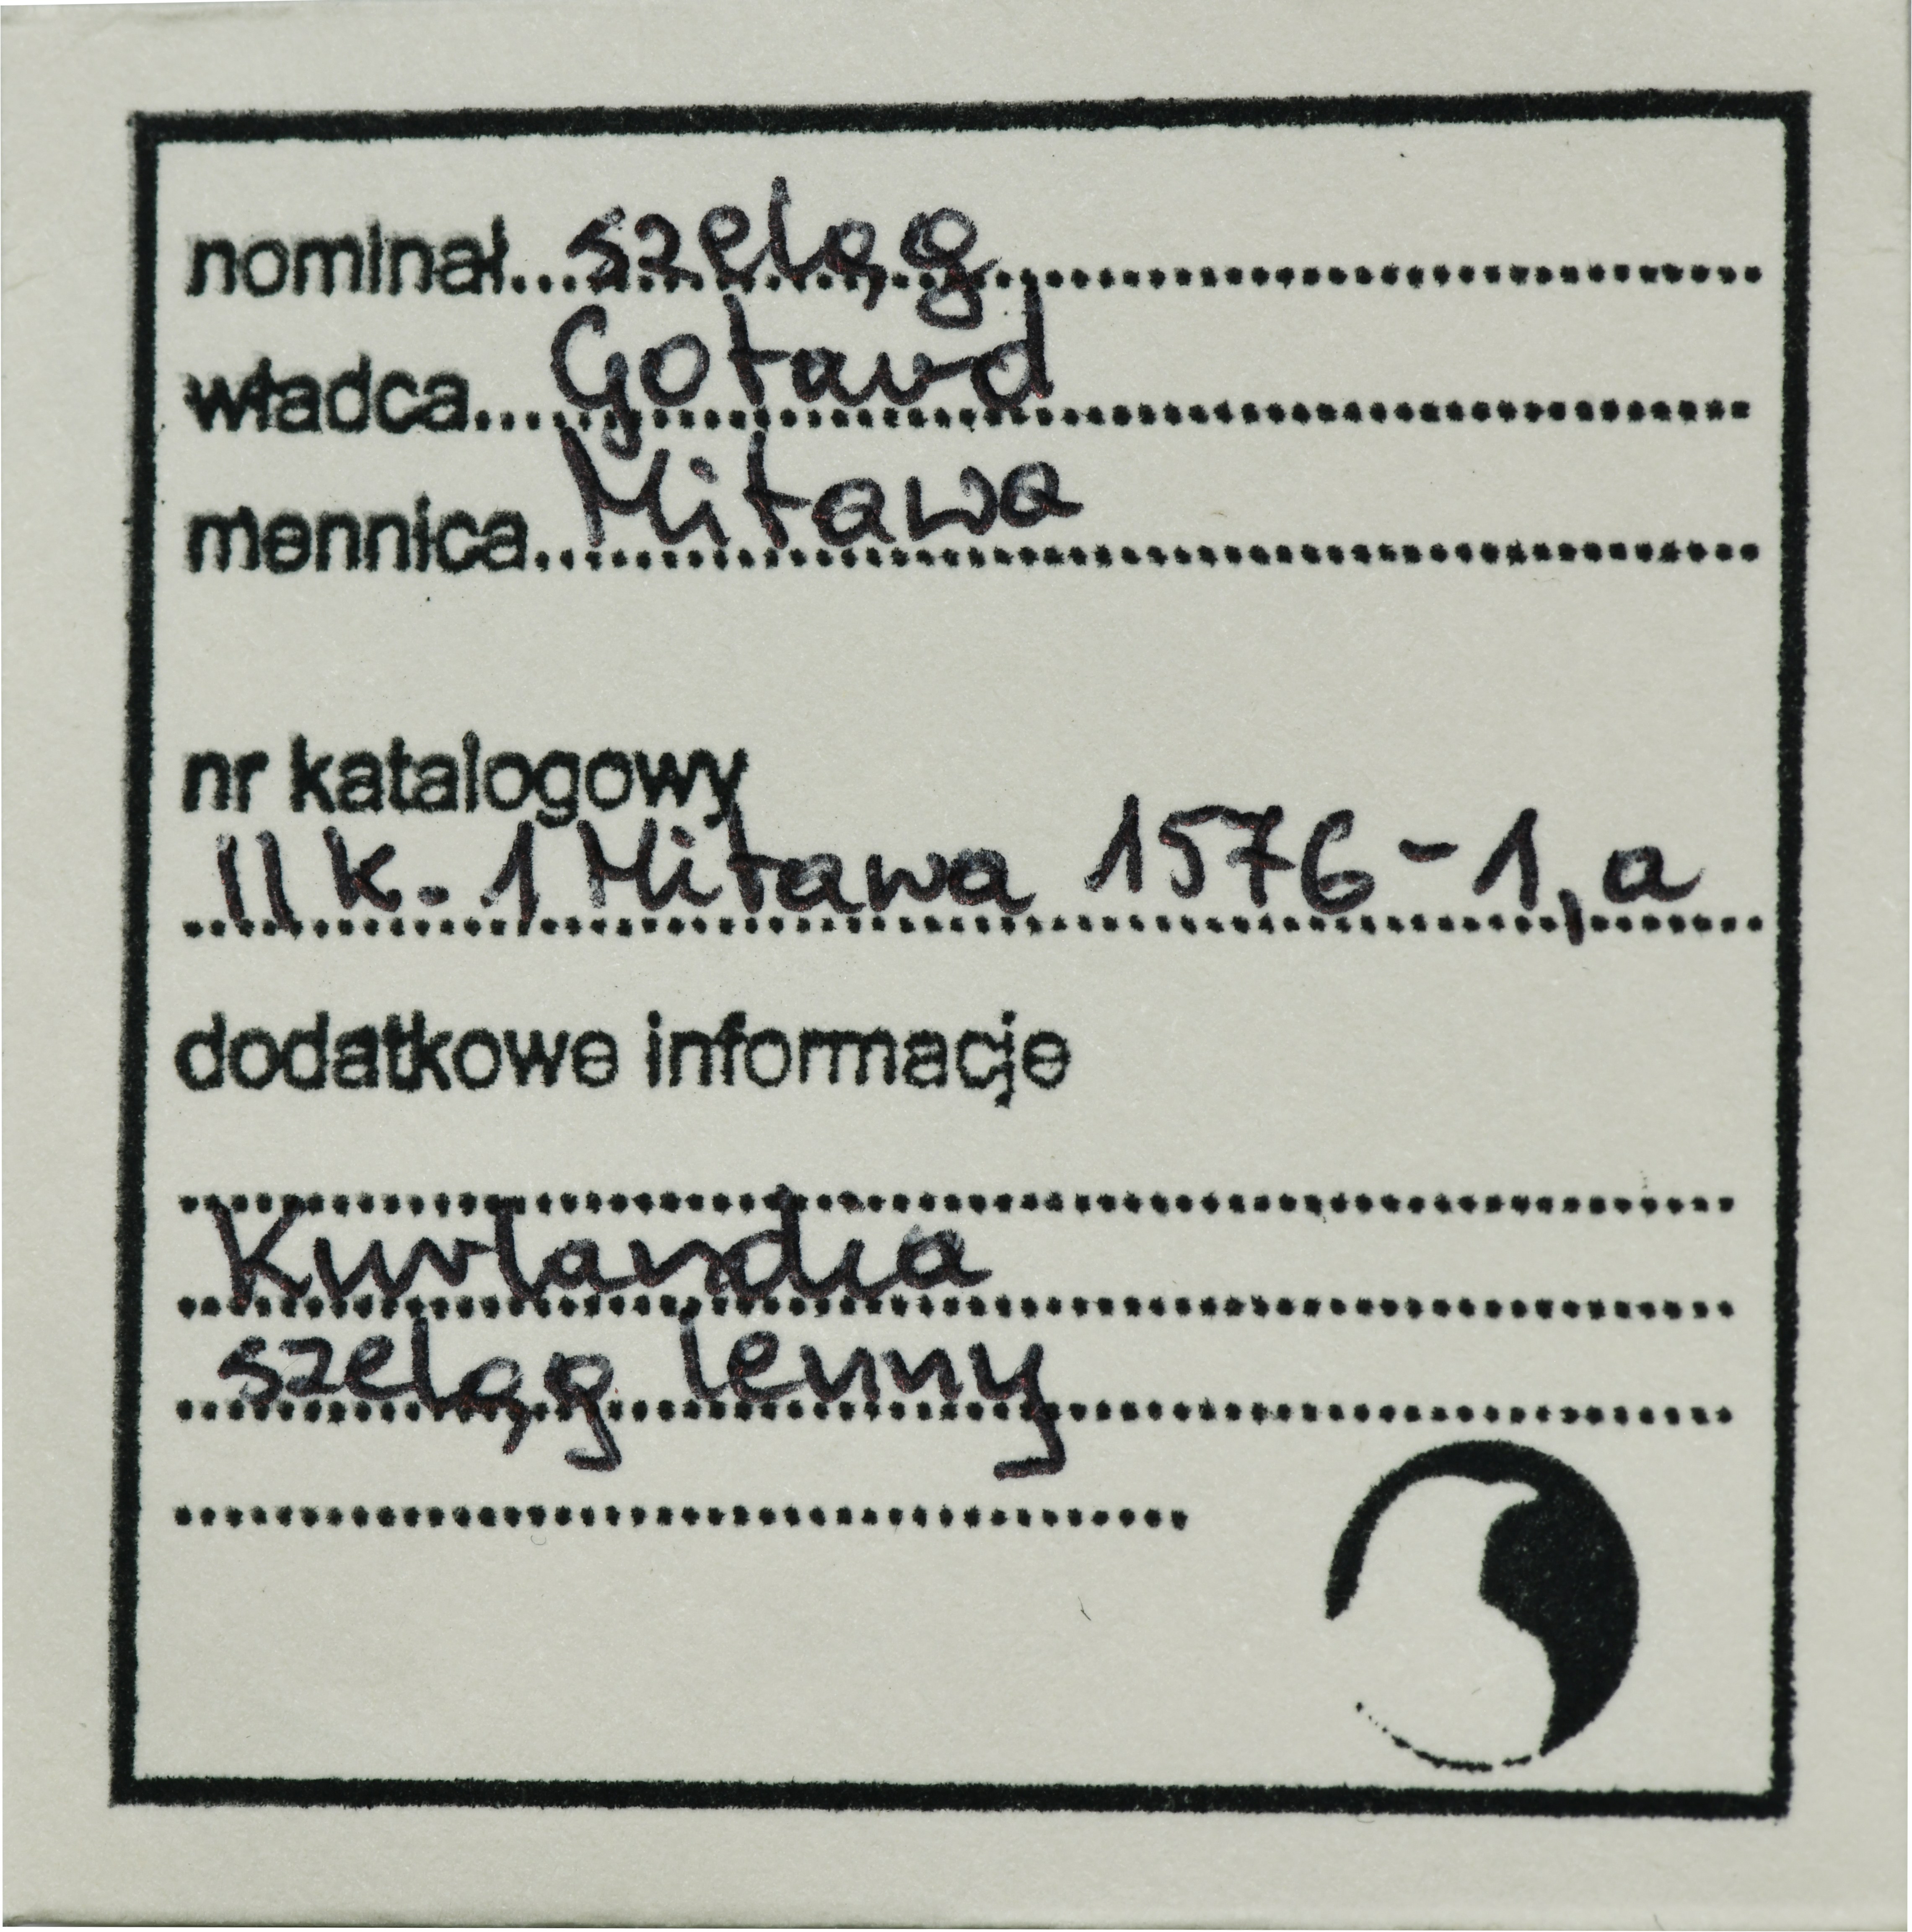 nominał...szeląg
władca...Gotard
mennica..Mitawa
nr katalogowy
II k. 1 Mitawa 1576-1,a
dodatkowe informacje
Kurlandia
szeląg lenny